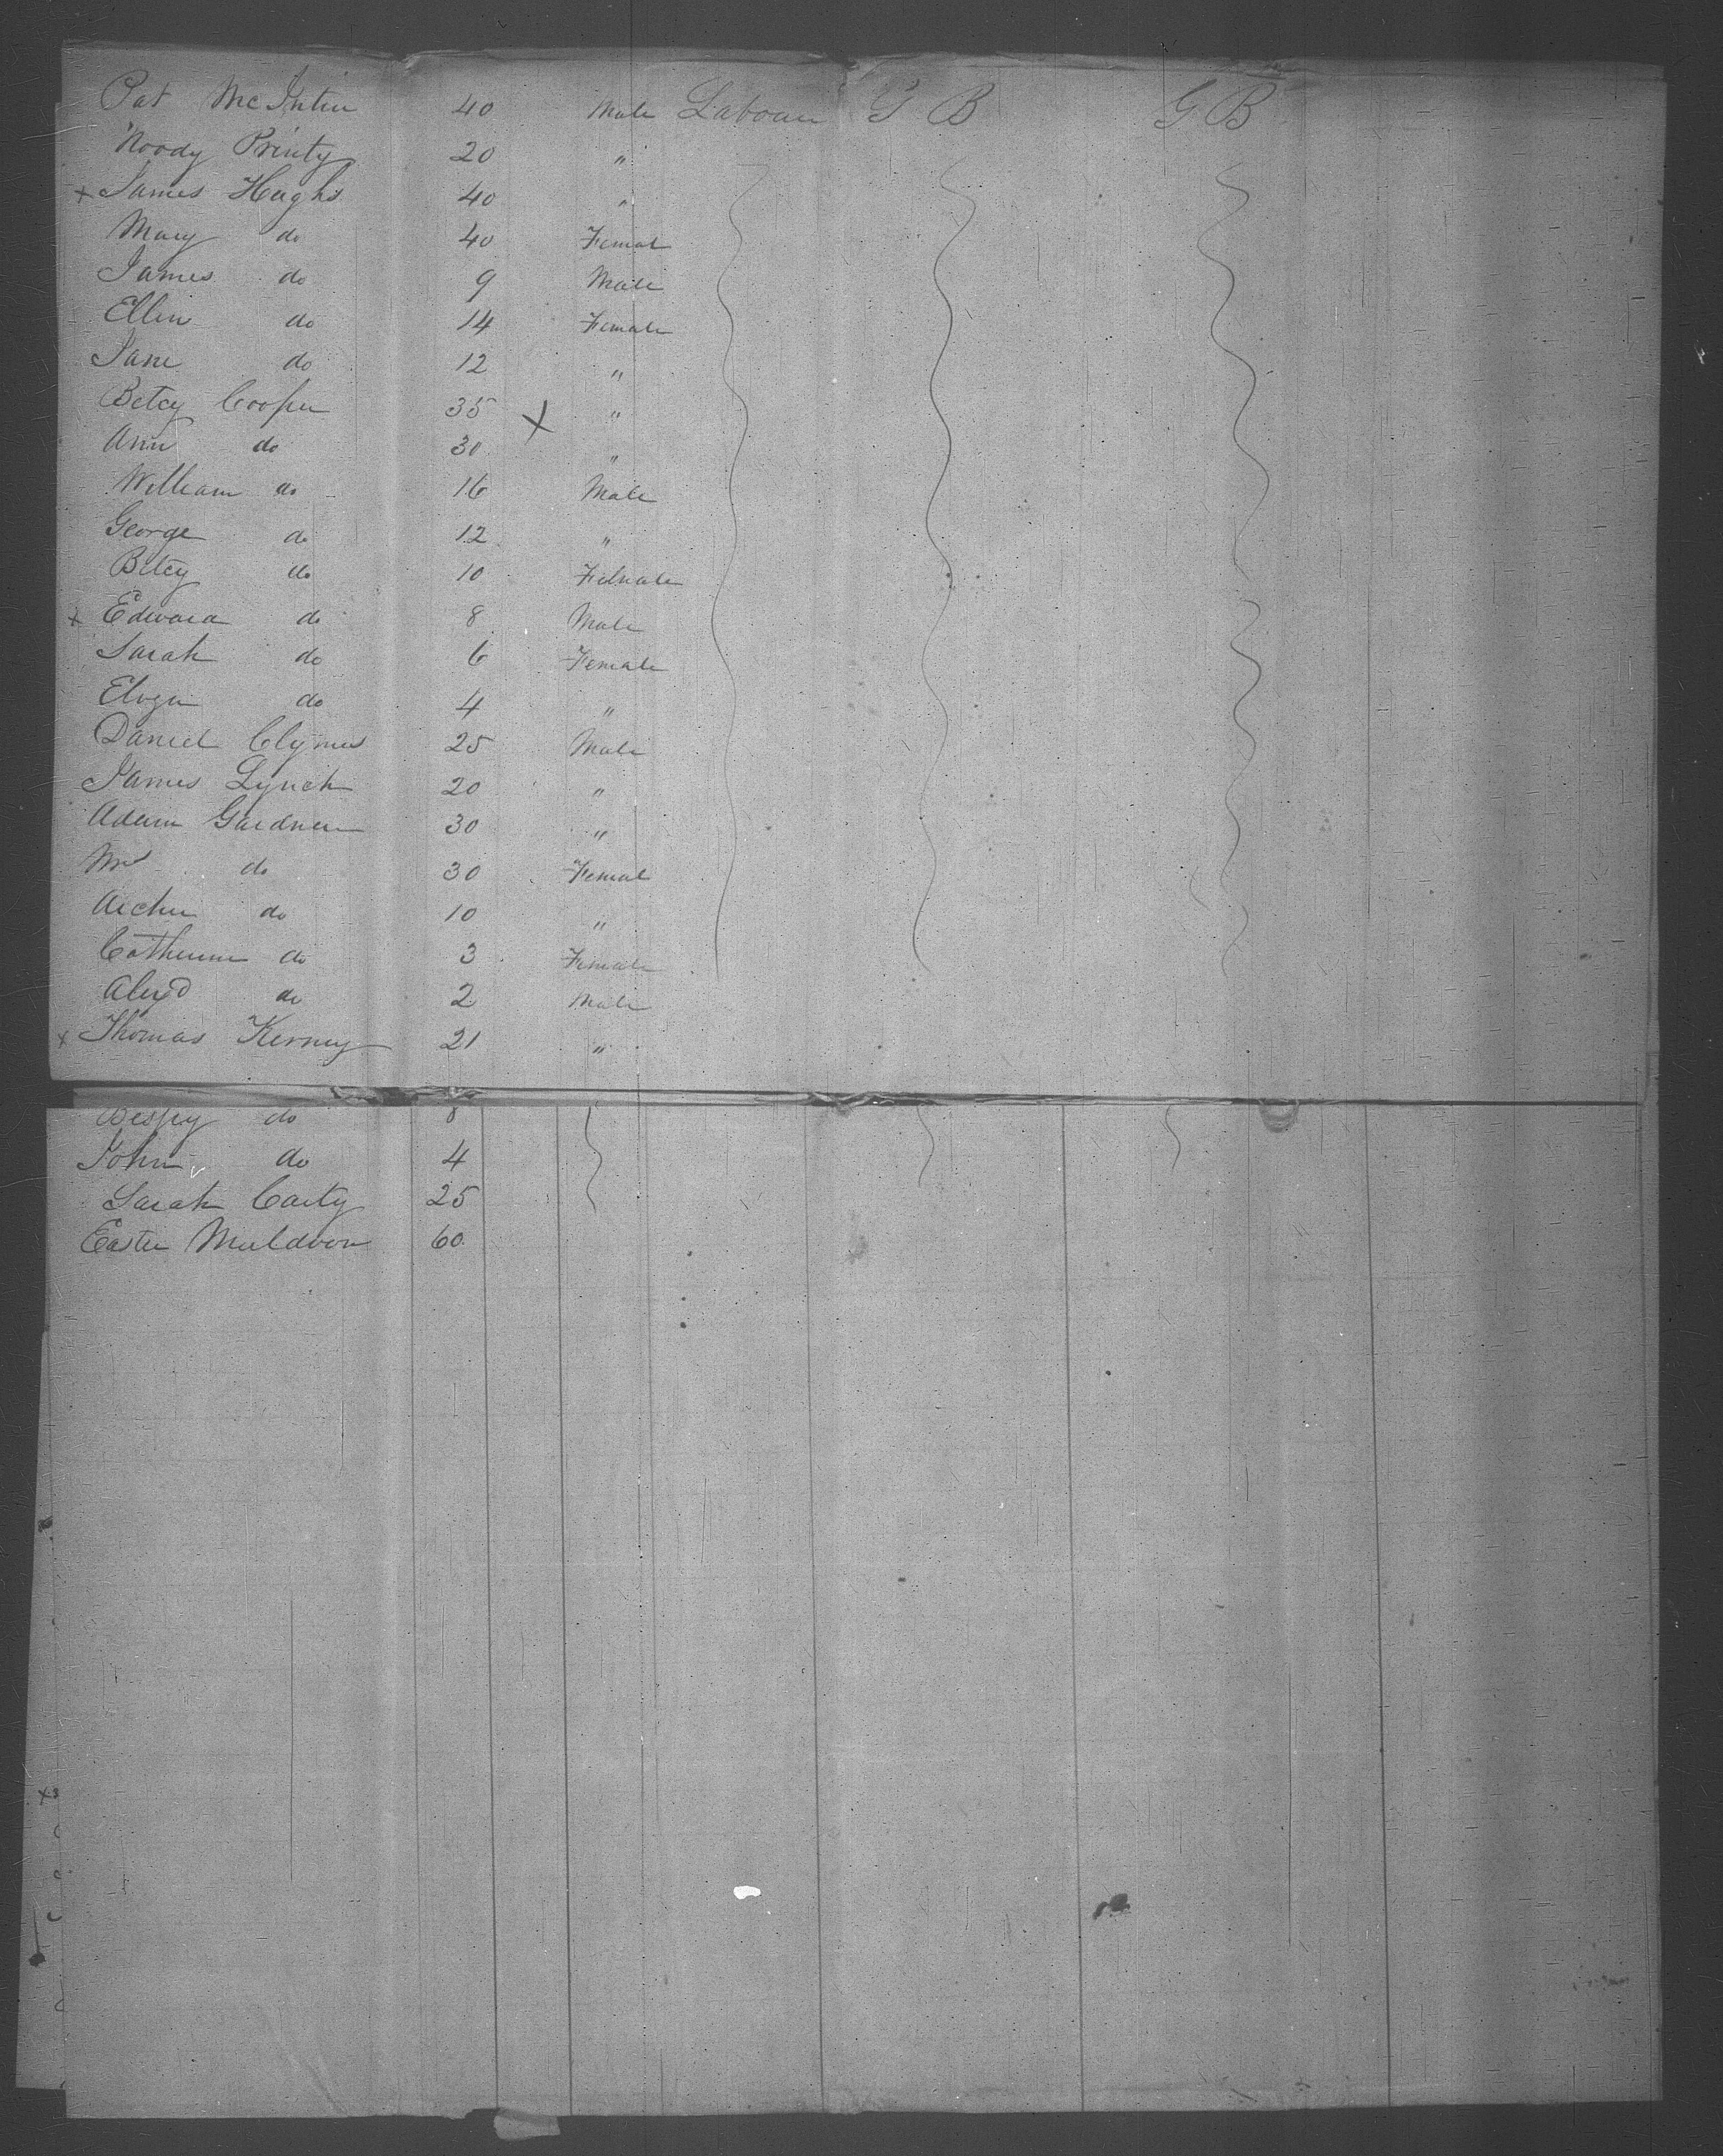 Pat McIntire 40 Male Labourer G B G B
Noody Printy 20 "
x James Haghs 40 "
Mary do 40 Femal
James do 9 Male
Ellin do 14 Female
Jane do 12 "
Betcy Cooper 35 x "
Ann do 30 "
William do 16 Male
George do 12 "
Betcy do 10 Female
x Edward do 8 Male
Sarah do 6 Female
do 4 "
Daniel Clymes 25 Male
James Lynch 20 "
Adam Gardner 30 "
Mrs do 30 Femal
Archer do 10 "
Catherine do 3 Female
Alexd do 2 Male
x Thomas Kerney 21 "
do 8
John do 4
Sarah Carty 25
Easter Muldoon 60